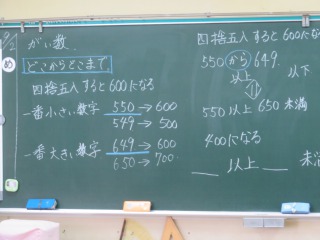 9/2
がい数
め
どこからどこまで
四捨五入すると600になる
一番小さい数字 550→600
549→500
一番大きい数字 649→600
650→700
四捨五入すると600にな
550から649
以上 以下
550以上650未満
400になる
＿以上＿未満